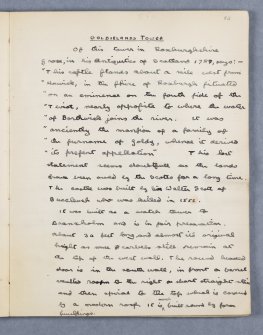 GOLDIELANDS TOWER
Of this tower in Roxburghshire
Grose, in his Antiquities of Scotland 1789, says:-
"This castle stands about a mile west from
"Hawick, in the shire of Roxburgh situated
"on an eminence on the south side of the
"Tiviot, nearly opposite to where the water
"of Borthwick joins the river. It was
"anciently the mansion of a family of
"the surname of Goldy, whence it derived
"its present appellation" This last
statement seems doubtful as the lands
have been owned by the Scotts for a long time.
The castle was built by Sir Walter Scott of
Buccleuch who was killed in 1552.
It was built as a watch tower to
Branxholm and is in fair preservation
about 32 feet long and almost its original
height as some corbels still remain at
the top of the west wall. The round headed
door is in the south wall, in front a barrel
vaulted room to the right a short straight
and then spiral to the top which is covered
by a modern roof. It is built round by farm
buildings.